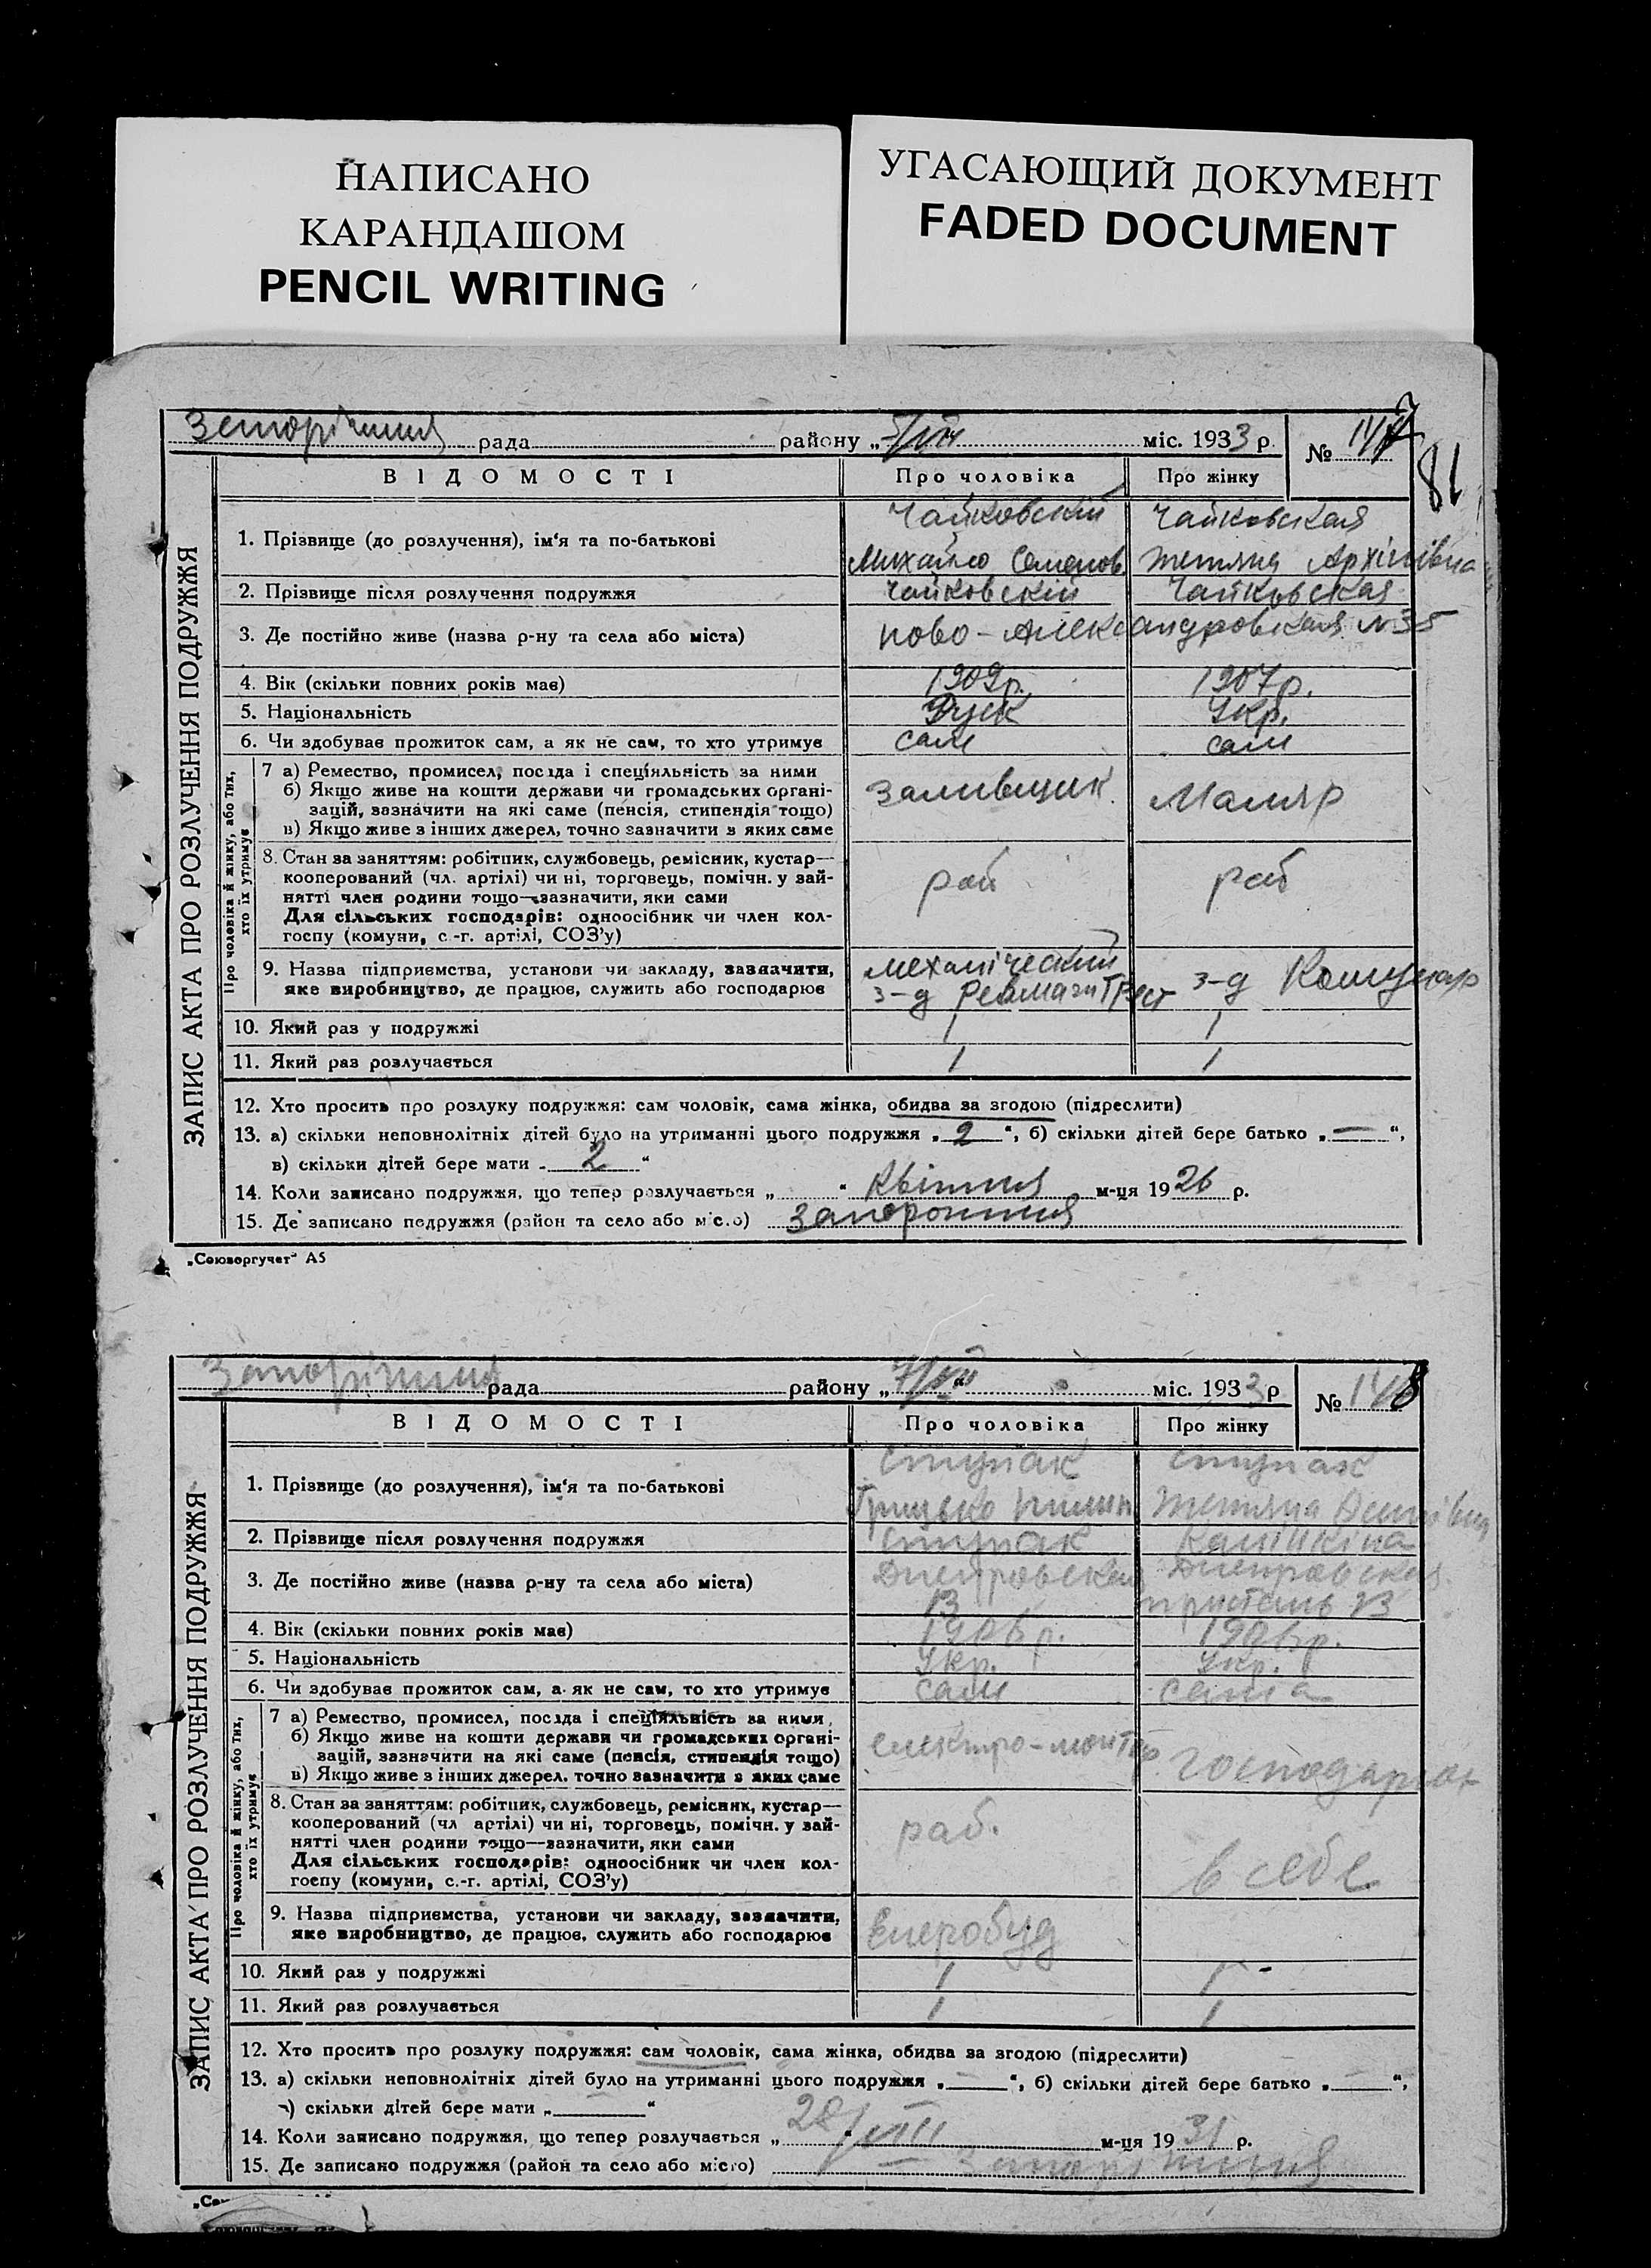 НАПИСАНО
КАРАНДАШОМ
PENCIL WRITING
УГАСАЮЩИЙ ДОКУМЕНТ
FADED DOCUMENT
рада району „ міс. 1933 р. № 147
81
ЗАПИС АКТА ПРО РОЗЛУЧЕННЯ ПОДРУЖЖЯ
ВІДОМОСТІ Про чоловіка Про жінку
Чайковскій Чайковская
1. Прізвище (до розлучення), ім'я та по-батькові
Михайло Семенов. Тетяна Архіпівна
2. Прізвище після розлучення подружжя Чайковскій Чайковская
3. Де постійно живе (назва р-ну та села або міста) ново-Александровская №35
4. Вік (скільки повних років має) 1909р. 1907р.
5. Національність Руск Укр.
6. Чи здобував прожиток сам, а як не сам, то хто утримує сам сам
Про чоловіка й жінку, або тих, хто їх утримує
7 а) Ремество, промисел, посада і спеціяльність за ними
б) Якщо живе на кошти держави чи громадських органі-
зацій, зазначити на які саме (пенсія, стипендія тощо) Заливщик Маляр
в) Якщо живе з інших джерел, точно зазначити з яких саме
8. Стан за заняттям: робітник, службовець, ремісник, кустар—
кооперований (чл. артілі) чи ні, торговець, помічн. у зай- раб раб
нятті член родини тощо—зазначити, яки сами
Для сільських господарів: одноосібник чи член кол-
госпу (комуни, с.-г. артілі, СОЗ'у)
9. Назва підприємства, установи чи закладу, зазначити, механіческий з-д Комунар
яке виробництво, де працює, служить або господарює з-д
10. Який раз у подружжі 1 1
11. Який раз розлучається 1 1
12. Хто просить про розлуку подружжя: сам чоловік, сама жінка, обидва за згодою (підреслити)
13. а) скільки неповнолітніх дітей було на утриманні цього подружжя „2“, б) скільки дітей бере батько „—“,
в) скільки дітей бере мати „2“
14. Коли записано подружжя, що тепер розлучається „ “ Квітня м-ця 1926 р.
15. Де записано подружжя (район та село або місто) Запоріжжя
„Союзоргучет“ А5
Запоріжжя рада району „ “ міс. 1933 р № 148
ЗАПИС АКТА ПРО РОЗЛУЧЕННЯ ПОДРУЖЖЯ
ВІДОМОСТІ Про чоловіка Про жінку
Ступак Ступак
1. Прізвище (до розлучення), ім'я та по-батькові
Грицько Тетяна
2. Прізвище після розлучення подружжя Ступак
3. Де постійно живе (назва р-ну та села або міста) Днепровская Днепровская
13 пристань 13
4. Вік (скільки повних років має) 1906р. 1906р.
5. Національність Укр. Укр.
6. Чи здобував прожиток сам, а як не сам, то хто утримує сам сама
Про чоловіка й жінку, або тих, хто їх утримує
7 а) Ремество, промисел, посада і спеціяльність за ними
б) Якщо живе на кошти держави чи громадських органі- електро-монтер
зацій, зазначити на які саме (пенсія, стипендія тощо) господарює
в) Якщо живе з інших джерел, точно зазначити з яких саме
8. Стан за заняттям: робітник, службовець, ремісник, кустар—
кооперований (чл артілі) чи ні, торговець, помічн. у зай- раб.
нятті член родини тощо—зазначити, яки сами
Для сільських господарів: одноосібник чи член кол- в себе
госпу (комуни, с.-г. артілі, СОЗ'у)
9. Назва підприємства, установи чи закладу, зазначити,
яке виробництво, де працює, служить або господарює
10. Який раз у подружжі 1 1
11. Який раз розлучається 1 1
12. Хто просить про розлуку подружжя: сам чоловік, сама жінка, обидва за згодою (підреслити)
13. а) скільки неповнолітніх дітей було на утриманні цього подружжя „—“, б) скільки дітей бере батько „—“,
в) скільки дітей бере мати „ “
14. Коли записано подружжя, що тепер розлучається „28“ VIII м-ця 1931 р.
15. Де записано подружжя (район та село або місто) Запоріжжя